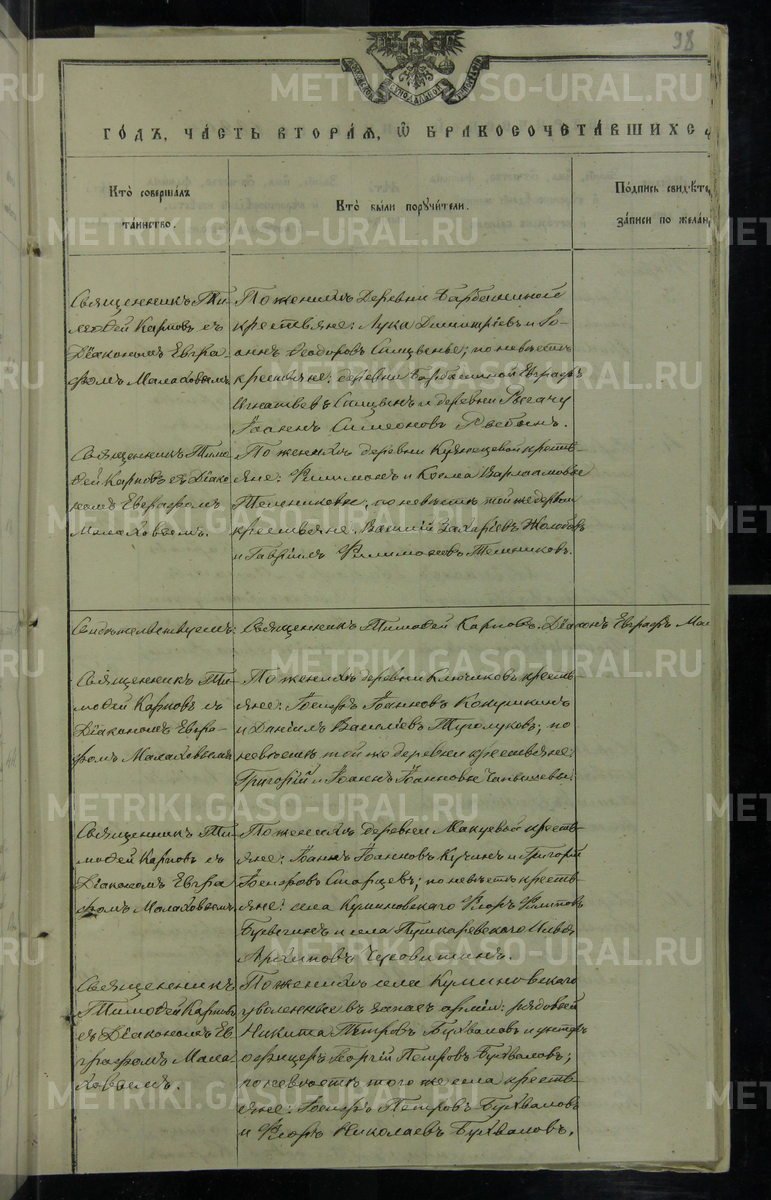 98
ГО́ДЪ, ЧА́СТЬ ВТОРА́Я, Ѿ БРАКОСОЧЕТА́ВШИХСѦ
Кто̀ соверша́лъ
та́инство.
Кто̀ бы́ли порꙋчи́тели.
По́дпись свидѣте
за́писи по жела́н
Священникъ Ти-
моѳей Карповъ съ
Діакономъ Евгра-
фомъ Малаховымъ
По женихѣ деревни
крестьяне: Лука Димитріевъ и Іо-
аннъ Ѳеодоровъ; по невѣстѣ
крестьяне: деревни Евграфъ
Игнатьевъ и деревни
Іоаннъ Симеоновъ
Священникъ Тимо-
ѳей Карповъ съ Діако-
номъ Евграфомъ
Малаховымъ.
По женихѣ деревни крестья-
яне: Филимонъ и Косма Варлаамовы
по невѣстѣ той же деревни
крестьяне: Василій Захаріевъ
и Гавріилъ Филимоновъ
Свидѣтельствуемъ: Священникъ Тимоѳей Карповъ. Діаконъ Евграфъ Мал
Священникъ Ти-
моѳей Карповъ съ
Діакономъ Евгра-
фомъ Малаховымъ
По женихѣ деревни Ключиковъ кресть-
яне: Іосифъ Іоанновъ Кокушкинъ
и Даніилъ Василіевъ Туголуковъ; по
невѣстѣ той же деревни крестьяне:
Григорій и Іоаннъ Іоанновы
Священникъ Ти-
моѳей Карповъ съ
Діакономъ Евгра-
фомъ Малаховымъ
По женихѣ деревни Макуевой кресть-
яне: Іоаннъ Іоанновъ Кучинъ и Григорій
Іосифовъ Старцевъ; по невѣстѣ кресть-
яне: села Куминовскаго Флоръ
и села Пушкаревскаго Илья
Архиповъ
Священникъ
Тимоѳей Карповъ
съ Діакономъ Ев-
графомъ Мала-
ховымъ.
По женихѣ села Куминовскаго
уволенные въ запасъ арміи: рядовой
Никита Петровъ Бухваловъ и унтеръ
офицеръ Георгій Петровъ Бухваловъ;
по невѣстѣ того же села кресть-
яне: Іосифъ Петровъ Бухваловъ
и Флоръ Николаевъ Бухваловъ.
METRIKI.GASO-URAL.RU